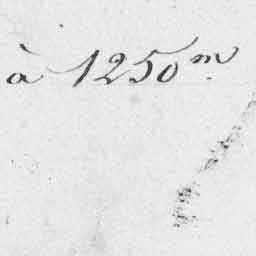 à 1250 m.